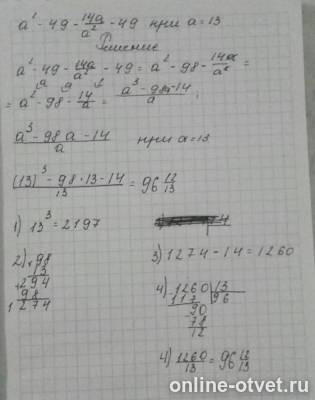 a² - 49 - 14a/a² - 49 при a = 13
Решение
a² - 49 - 14a/a² - 49 = a² - 98 - 14a/a² =
= a² - 98 - 14/a = a³ - 98a - 14/a ;
a³ - 98a - 14/a при a = 13
(13)³ - 98 · 13 - 14/13 = 96 12/13
1) 13³ = 2197
2) × 98
13
+ 294
98
1274
3) 1274 - 14 = 1260
4) 1260 | 13
117 | 96
90
78
12
4) 1260/13 = 96 12/13
online-otvet.ru